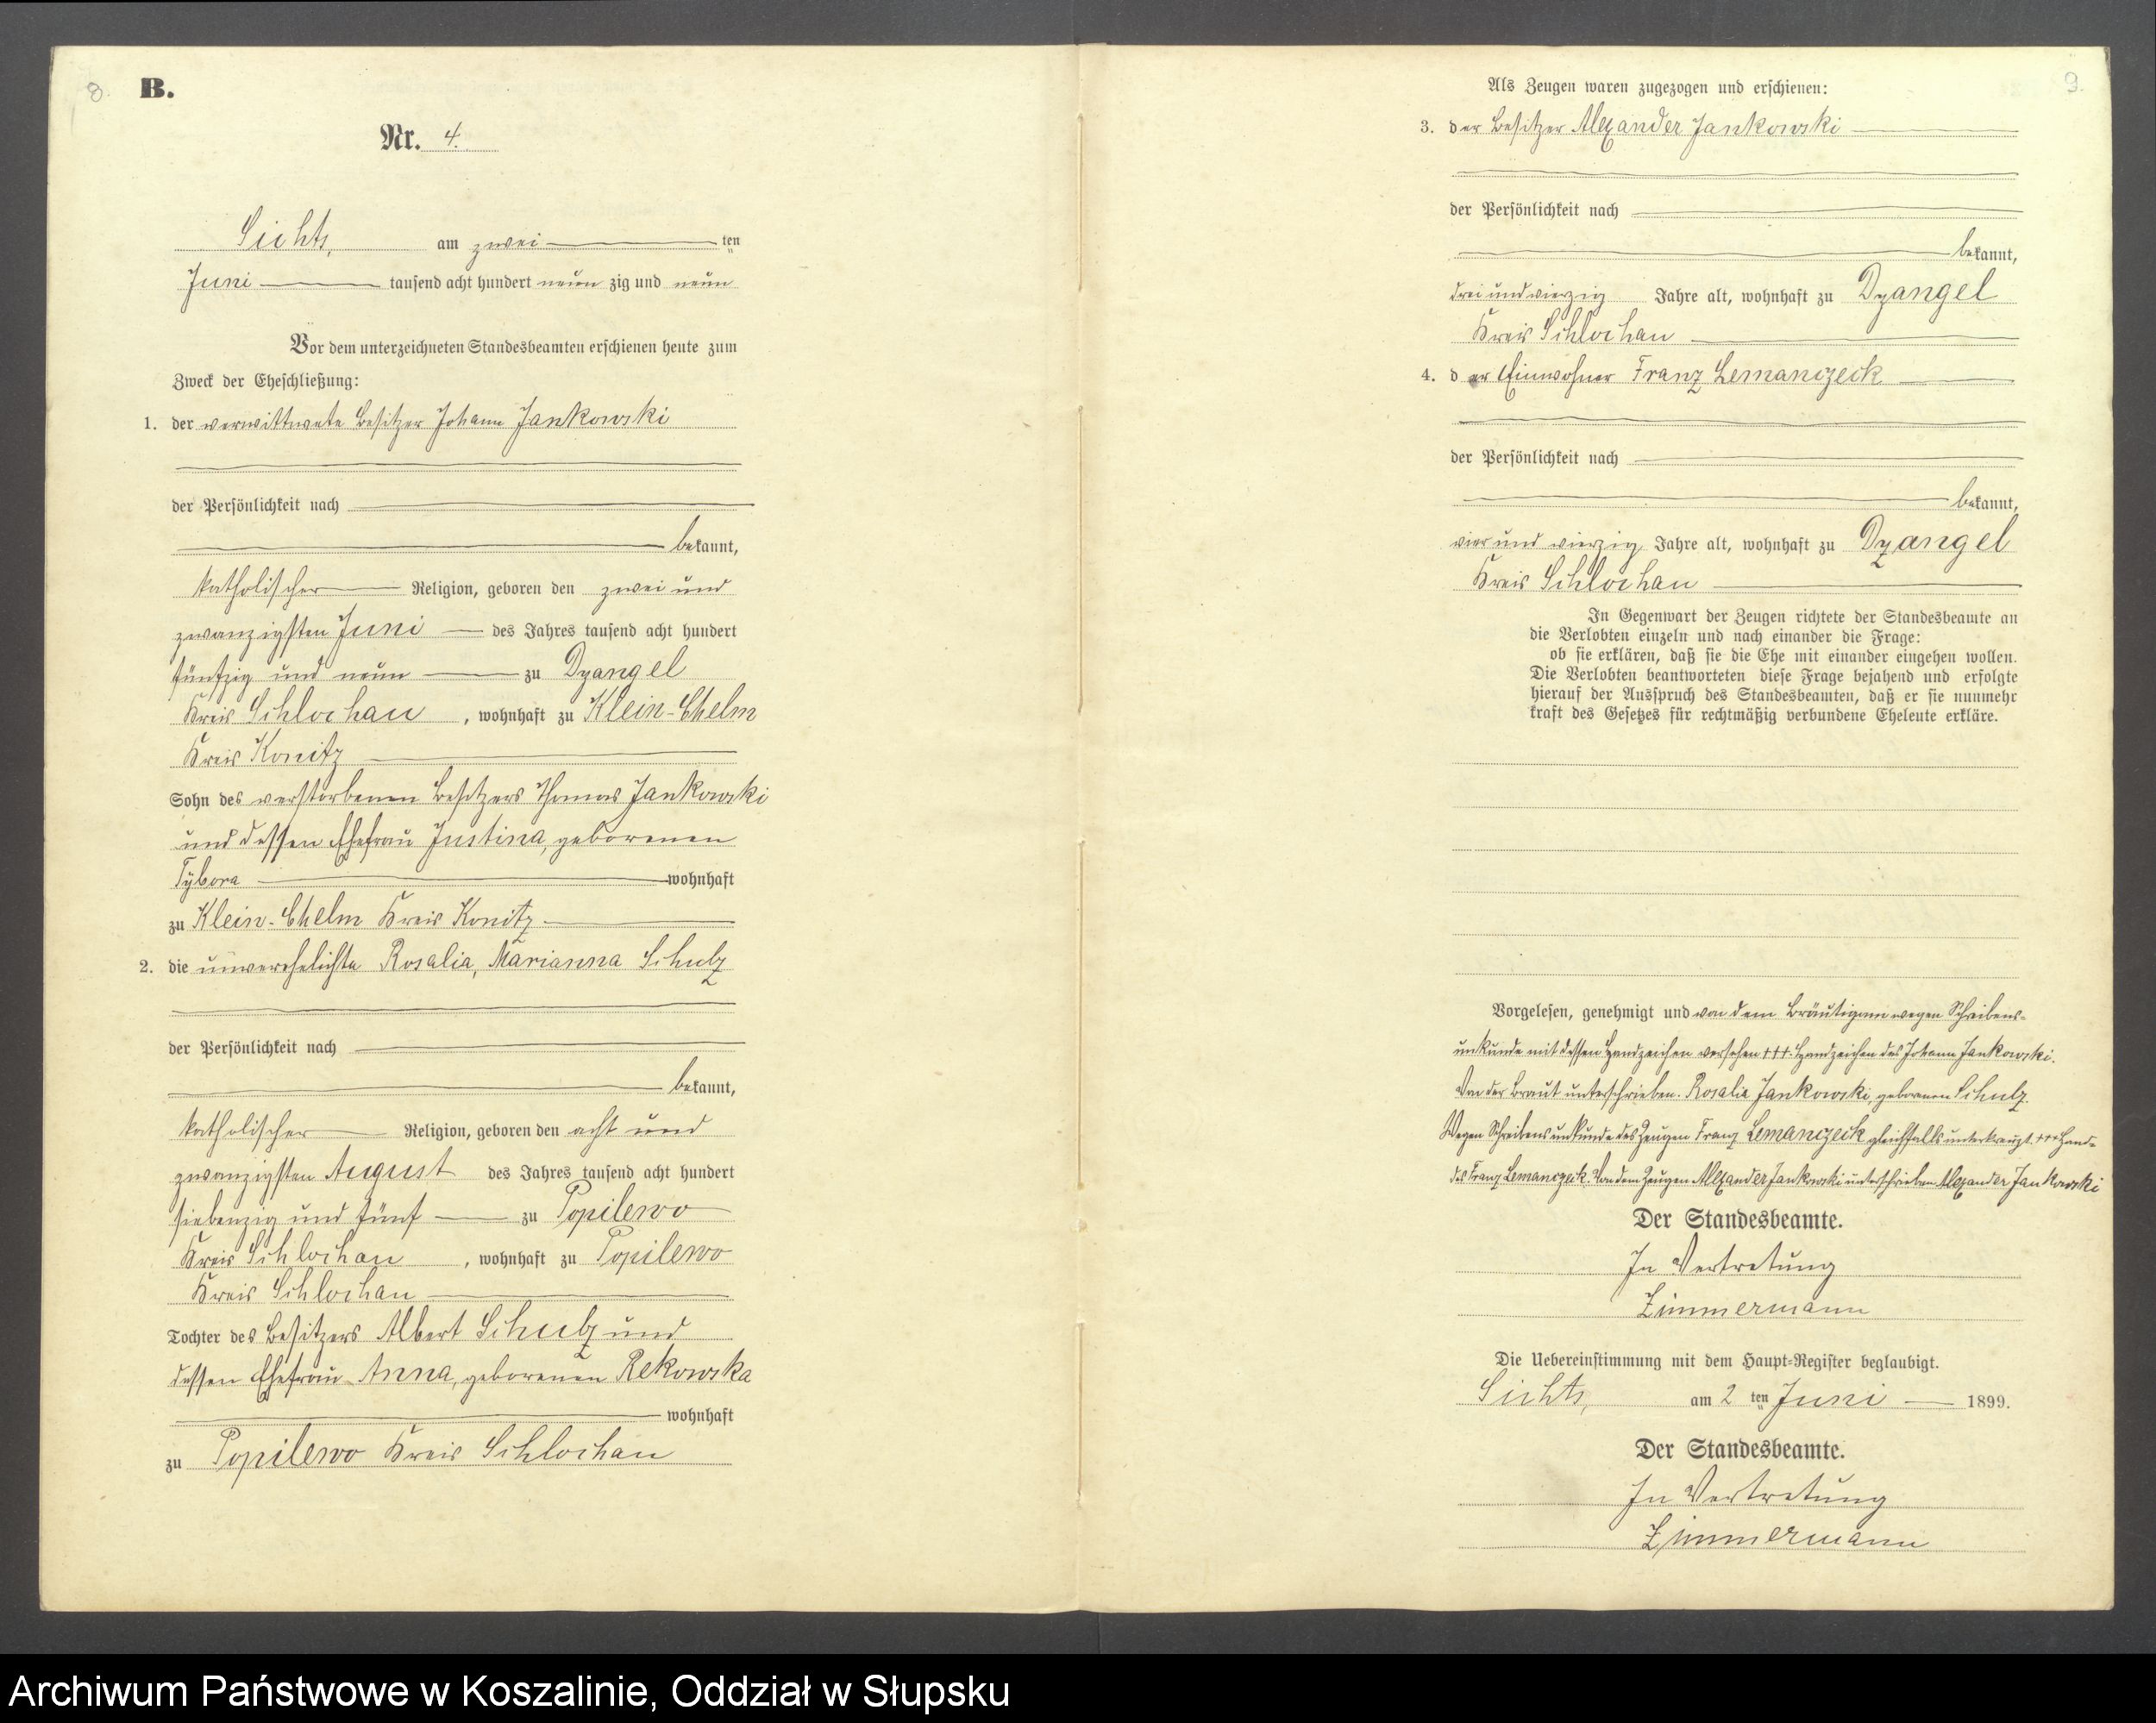 8.
B.
Nr. 4.
Sichts, am zwei ten
Juni tausend acht hundert neun zig und neun
Vor dem unterzeichneten Standesbeamten erschienen heute zum
Zweck der Eheschließung:
1. der verwittwete Besitzer Johann Jankowski
der Persönlichkeit nach
bekannt,
katholischer Religion, geboren den zwei und
zwanzigsten Juni des Jahres tausend acht hundert
fünfzig und neun zu Dzangel
Kreis Schlochau, wohnhaft zu Klein-Chelm
Kreis Konitz
Sohn des verstorbenen Besitzers Thomas Jankowski
und dessen Ehefrau Justina, geborenen
Tybora wohnhaft
zu Klein-Chelm Kreis Konitz
2. die unverehelichte Rosalia, Marianna Schulz
der Persönlichkeit nach
bekannt,
katholischer Religion, geboren den acht und
zwanzigsten August des Jahres tausend acht hundert
siebenzig und fünf zu Popilewo
Kreis Schlochau, wohnhaft zu Popilewo
Kreis Schlochau
Tochter des Besitzers Albert Schulz und
dessen Ehefrau Anna, geborenen Rekowska
wohnhaft
zu Popilewo Kreis Schlochau
9.
Als Zeugen waren zugezogen und erschienen:
3. der Besitzer Alexander Jankowski
der Persönlichkeit nach
bekannt,
drei und vierzig Jahre alt, wohnhaft zu Dzangel
Kreis Schlochau
4. der Einwohner Franz Lemanczeck
der Persönlichkeit nach
bekannt,
vier und vierzig Jahre alt, wohnhaft zu Dzangel
Kreis Schlochau
In Gegenwart der Zeugen richtete der Standesbeamte an
die Verlobten einzeln und nach einander die Frage:
ob sie erklären, daß sie die Ehe mit einander eingehen wollen.
Die Verlobten beantworteten diese Frage bejahend und erfolgte
hierauf der Ausspruch des Standesbeamten, daß er sie nunmehr
kraft des Gesetzes für rechtmäßig verbundene Eheleute erkläre.
Vorgelesen, genehmigt und von dem Bräutigam wegen Schreibens-
unkunde mit dessen Handzeichen versehen +++. Handzeichen des Johann Jankowski.
Von der Braut unterschrieben. Rosalia Jankowski, geborenen Schulz.
Wegen Schreibensunkunde des Zeugen Franz Lemanczeck gleichfalls unterkreuzt. +++ Handz
des Franz Lemanczeck. Von dem Zeugen Alexander Jankowski unterschrieben Alexander Jankowski
Der Standesbeamte.
In Vertretung
Zimmermann
Die Uebereinstimmung mit dem Haupt-Register beglaubigt.
Sichts, am 2 ten Juni 1899.
Der Standesbeamte.
In Vertretung
Zimmermann
Archiwum Państwowe w Koszalinie, Oddział w Słupsku